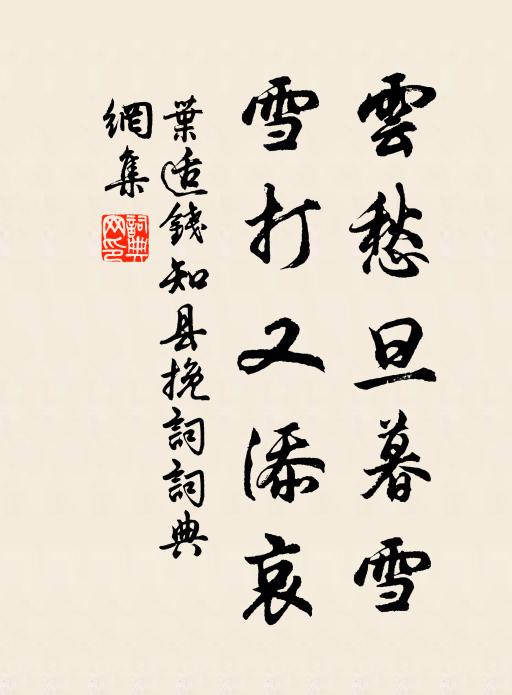 雲愁旦暮雪
雪打又添哀
葉适錢知县挽詞詞典
網集
詞典
网印